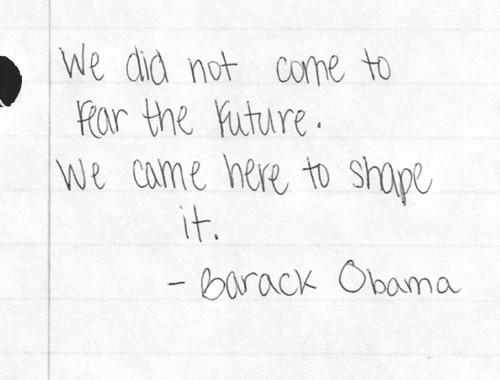 We did not come to
fear the future.
We came here to shape
it.
- Barack Obama